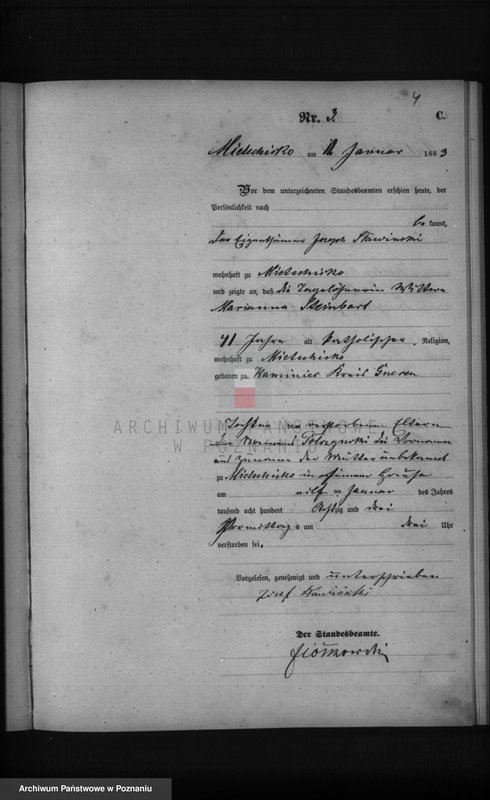 4
Nr. 3.
C.
Mietschisko am 12 Januar 1883
Vor dem unterzeichneten Standesbeamten erschien heute, der
Persönlichkeit nach
bekannt,
der Eigenthümer Joseph
wohnhaft zu Mietschisko
und zeigte an, daß die Tagelöhnerin Wittwe
Marianna Steinbart
41 Jahre alt katholischer Religion,
wohnhaft zu Mietschisko
geboren zu Kaminiec Kreis Gnesen
Tochter der verstorbenen Eltern
die Vornamen
und Zuname der Mutter unbekannt
zu Mietschisko in seinem Hause
am elf ten Januar des Jahres
tausend acht hundert Achtzig und drei
Vormittags um drei Uhr
verstorben sei.
Vorgelesen, genehmigt und unterschrieben
Józef
Der Standesbeamte.
ARCHIWUM PAŃSTWOWE
W POZNANIU
Archiwum Państwowe w Poznaniu